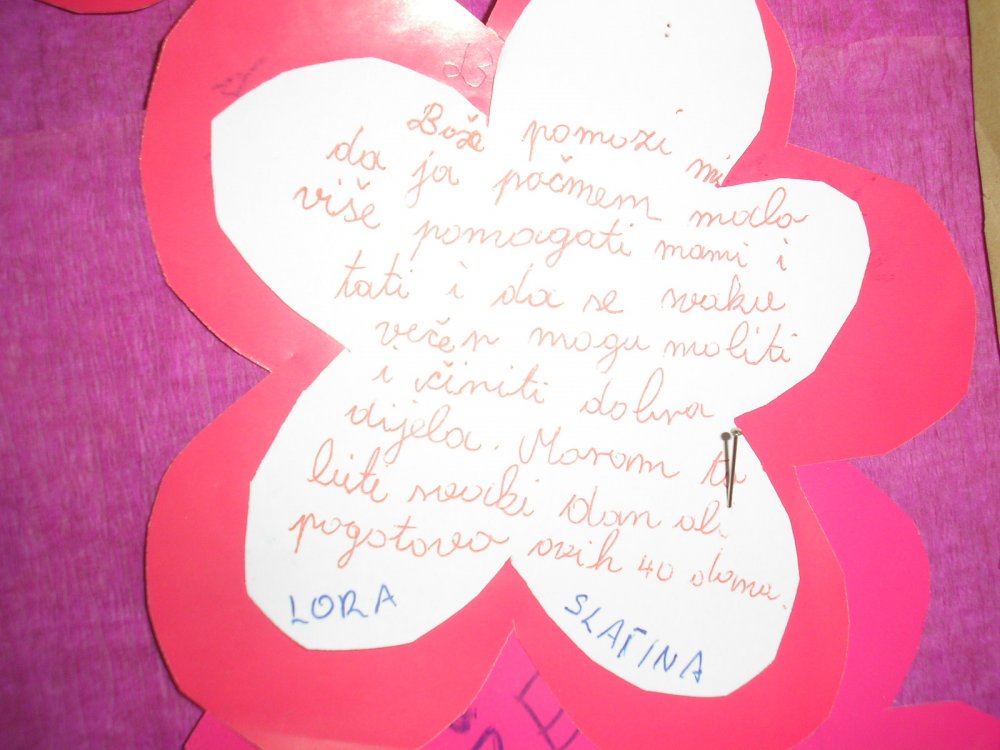 Bože pomozi mi
da ja počmem malo
više pomagati mami i
tati i da se svaku
večer mogu moliti
i činiti dobra
dijela. Moram to
biti svaki dan al.
pogotovo ovih 40 dana.
LORA
SLATINA